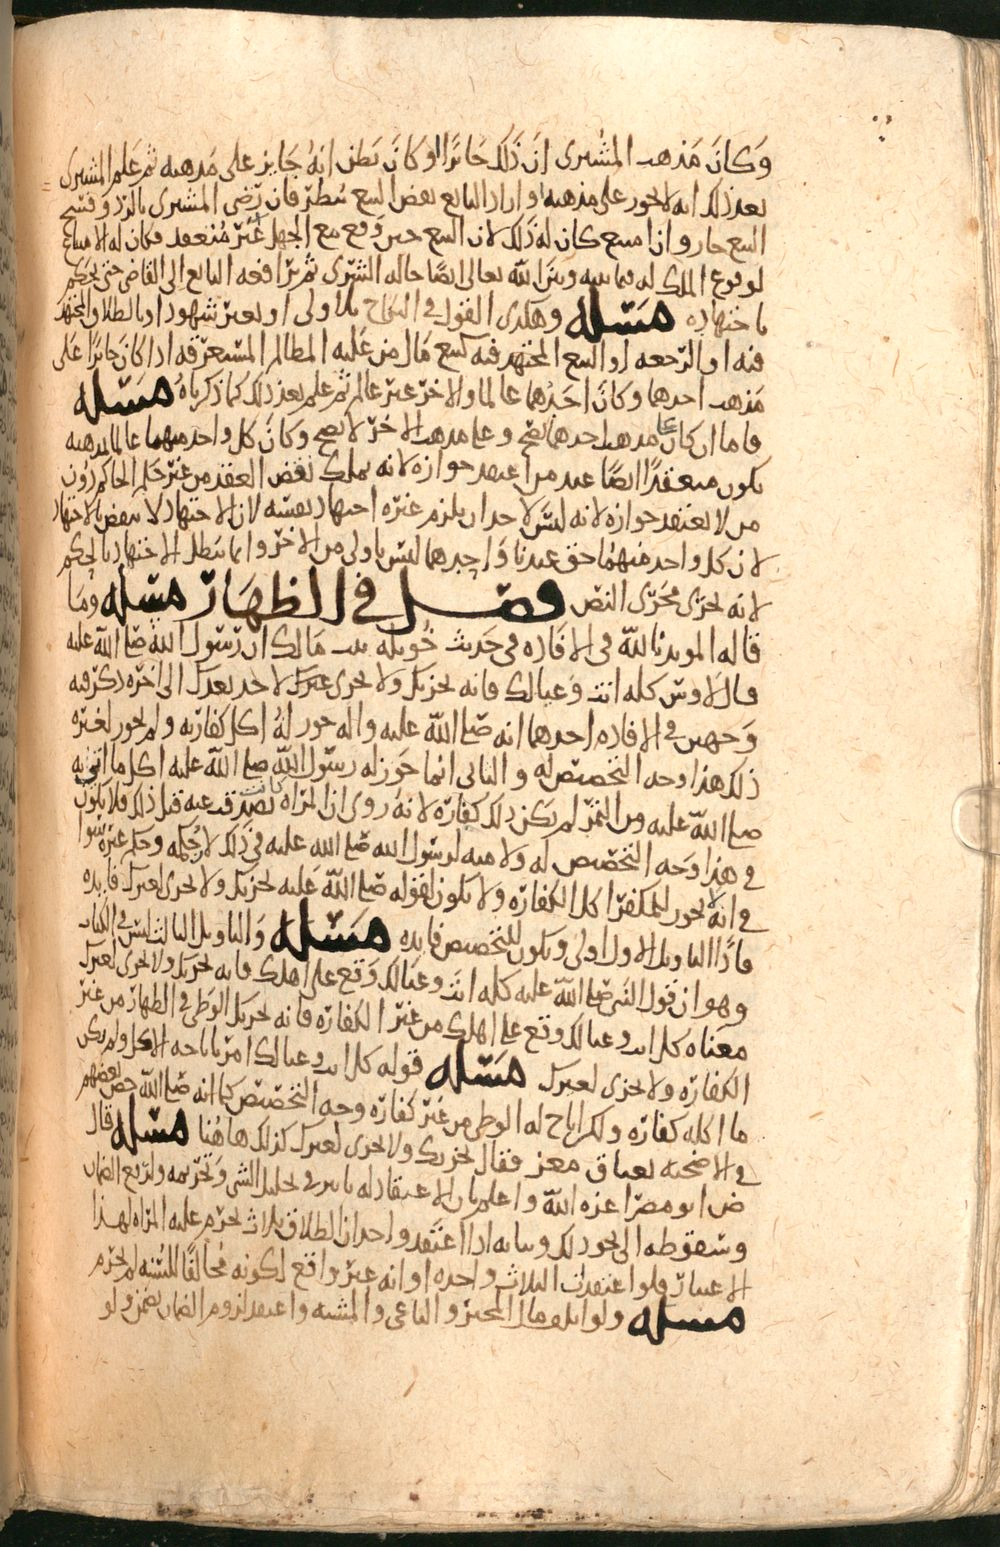 وكان مذهب المشتري ان ذلك جائزا او كان يظن انه جايز على مذهبه ثم علم المشتري
بعد ذلك انه لا يجوز على مذهبه واراد البايع نقض البيع نظر فان رضي المشتري بالرد وفسخ
البيع جاز وان امتنع كان له ذلك لان البيع حين وقع مع الجهل غير منعقد فكان له الامتناع
لوقوع الملك له فيما بينه وبين الله تعالى ايضا حاله الشرى ثم يرافعه البايع الى القاضي حتى يحكم
باجتهاده مسله وهكذى القول في النكاح بلا ولي او بغير شهود او بالطلاق المجتهد
فيه او الرجعه او البيع المجتهد فيه كبيع مال من عليه المظالم المستغرقه اذا كان جائزا على
مذهب احدهما وكان احدهما عالما والاخر غير عالم ثم علم بعد ذلك كما ذكرناه مسله
فاما ان كان على مذهب احدهما يصح وعلى مذهب الاخر لا يصح وكان كل واحد منهما عالما بمذهبه
يكون منعقدا ايضا عند من اعتقد جوازه لانه يملك نقض العقد من غير حكم الحاكم دون
من لا يعتقد جوازه لانه ليس لاحد ان يلزم غيره اجتهاد نفسه لان الاجتهاد لا ينقض بالاجتهاد
لان كل واحد منهما حق عندنا واحدهما ليس باولى من الاخر وانما يبطل الاجتهاد بالحكم
لانه يجرى مجرى النص فصل في الظهار مسله وما
قاله المويد بالله في الافاده في حديث خويله بنت مالك ان رسول الله صلى الله عليه
قال لاوس كله انت وعيالك فانه يجزيك ولا يجزى غيرك لاحد بعدك الى اخره ذكر فيه
وجهين في الافاده احدهما انه صلى الله عليه واله جوز له اكل كفارته ولم يجوز لغيره
ذلك هذا وجه التخصيص له والثاني انما جوز له رسول الله صلى الله عليه اكل ما اتي به
صلى الله عليه من التمر لم يكن ذلك كفارة لانه روى ان المراه كانت تصدقت عنه قبل ذلك فلا يكون
في هذا وجه التخصيص له ولا منه لرسول الله صلى الله عليه في ذلك لان حكمه وحكم غيره سوا
في انه لا يجوز للمكفر اكل الكفاره ولا يكون لقوله صلى الله عليه يجزيك ولا يجزى لغيرك فايده
فاذا التاويل الاول اولى ويكون للتخصيص فايده مسله والتاويل الثالث ليس في الكتاب
وهو ان قول النبي صلى الله عليه كله انت وعيالك وقع على اهلك فانه يجزيك ولا يجزى لغيرك
معناه كل انت وعيالك وقع على اهلك من غير الكفاره فانه يجزيك الوطي في الظهار من غير
الكفاره ولا يجزى لغيرك مسله قوله كل انت وعيالك امر باباحه الاكل ولم يكن
ما اكله كفاره ولكن اباح له الوطي من غير كفاره وجه التخصيص كما انه صلى الله خص بعضهم
في الاضحيه بعناق معز فقال يجزيك ولا يجزى لغيرك كذلك هاهنا مسله قال
ض ابو مضر اعزه الله واعلم بان الاعتقاد له تاثير في تحليل الشي وتحريمه ولزوم الضمان
وسقوطه الى نحو ذلك وبيانه اذا اعتقد واحد ان الطلاق ثلاث يحرم عليه المراه لهذا
الاعتبار فلو اعتقد ان الثلاث واحده او انه غير واقع لكونه مخالفا للسنه لم يحرم
مسله ولو اتلف مال المجبر والباغي والمشبه واعتقد لزوم الضمان يضمن ولو